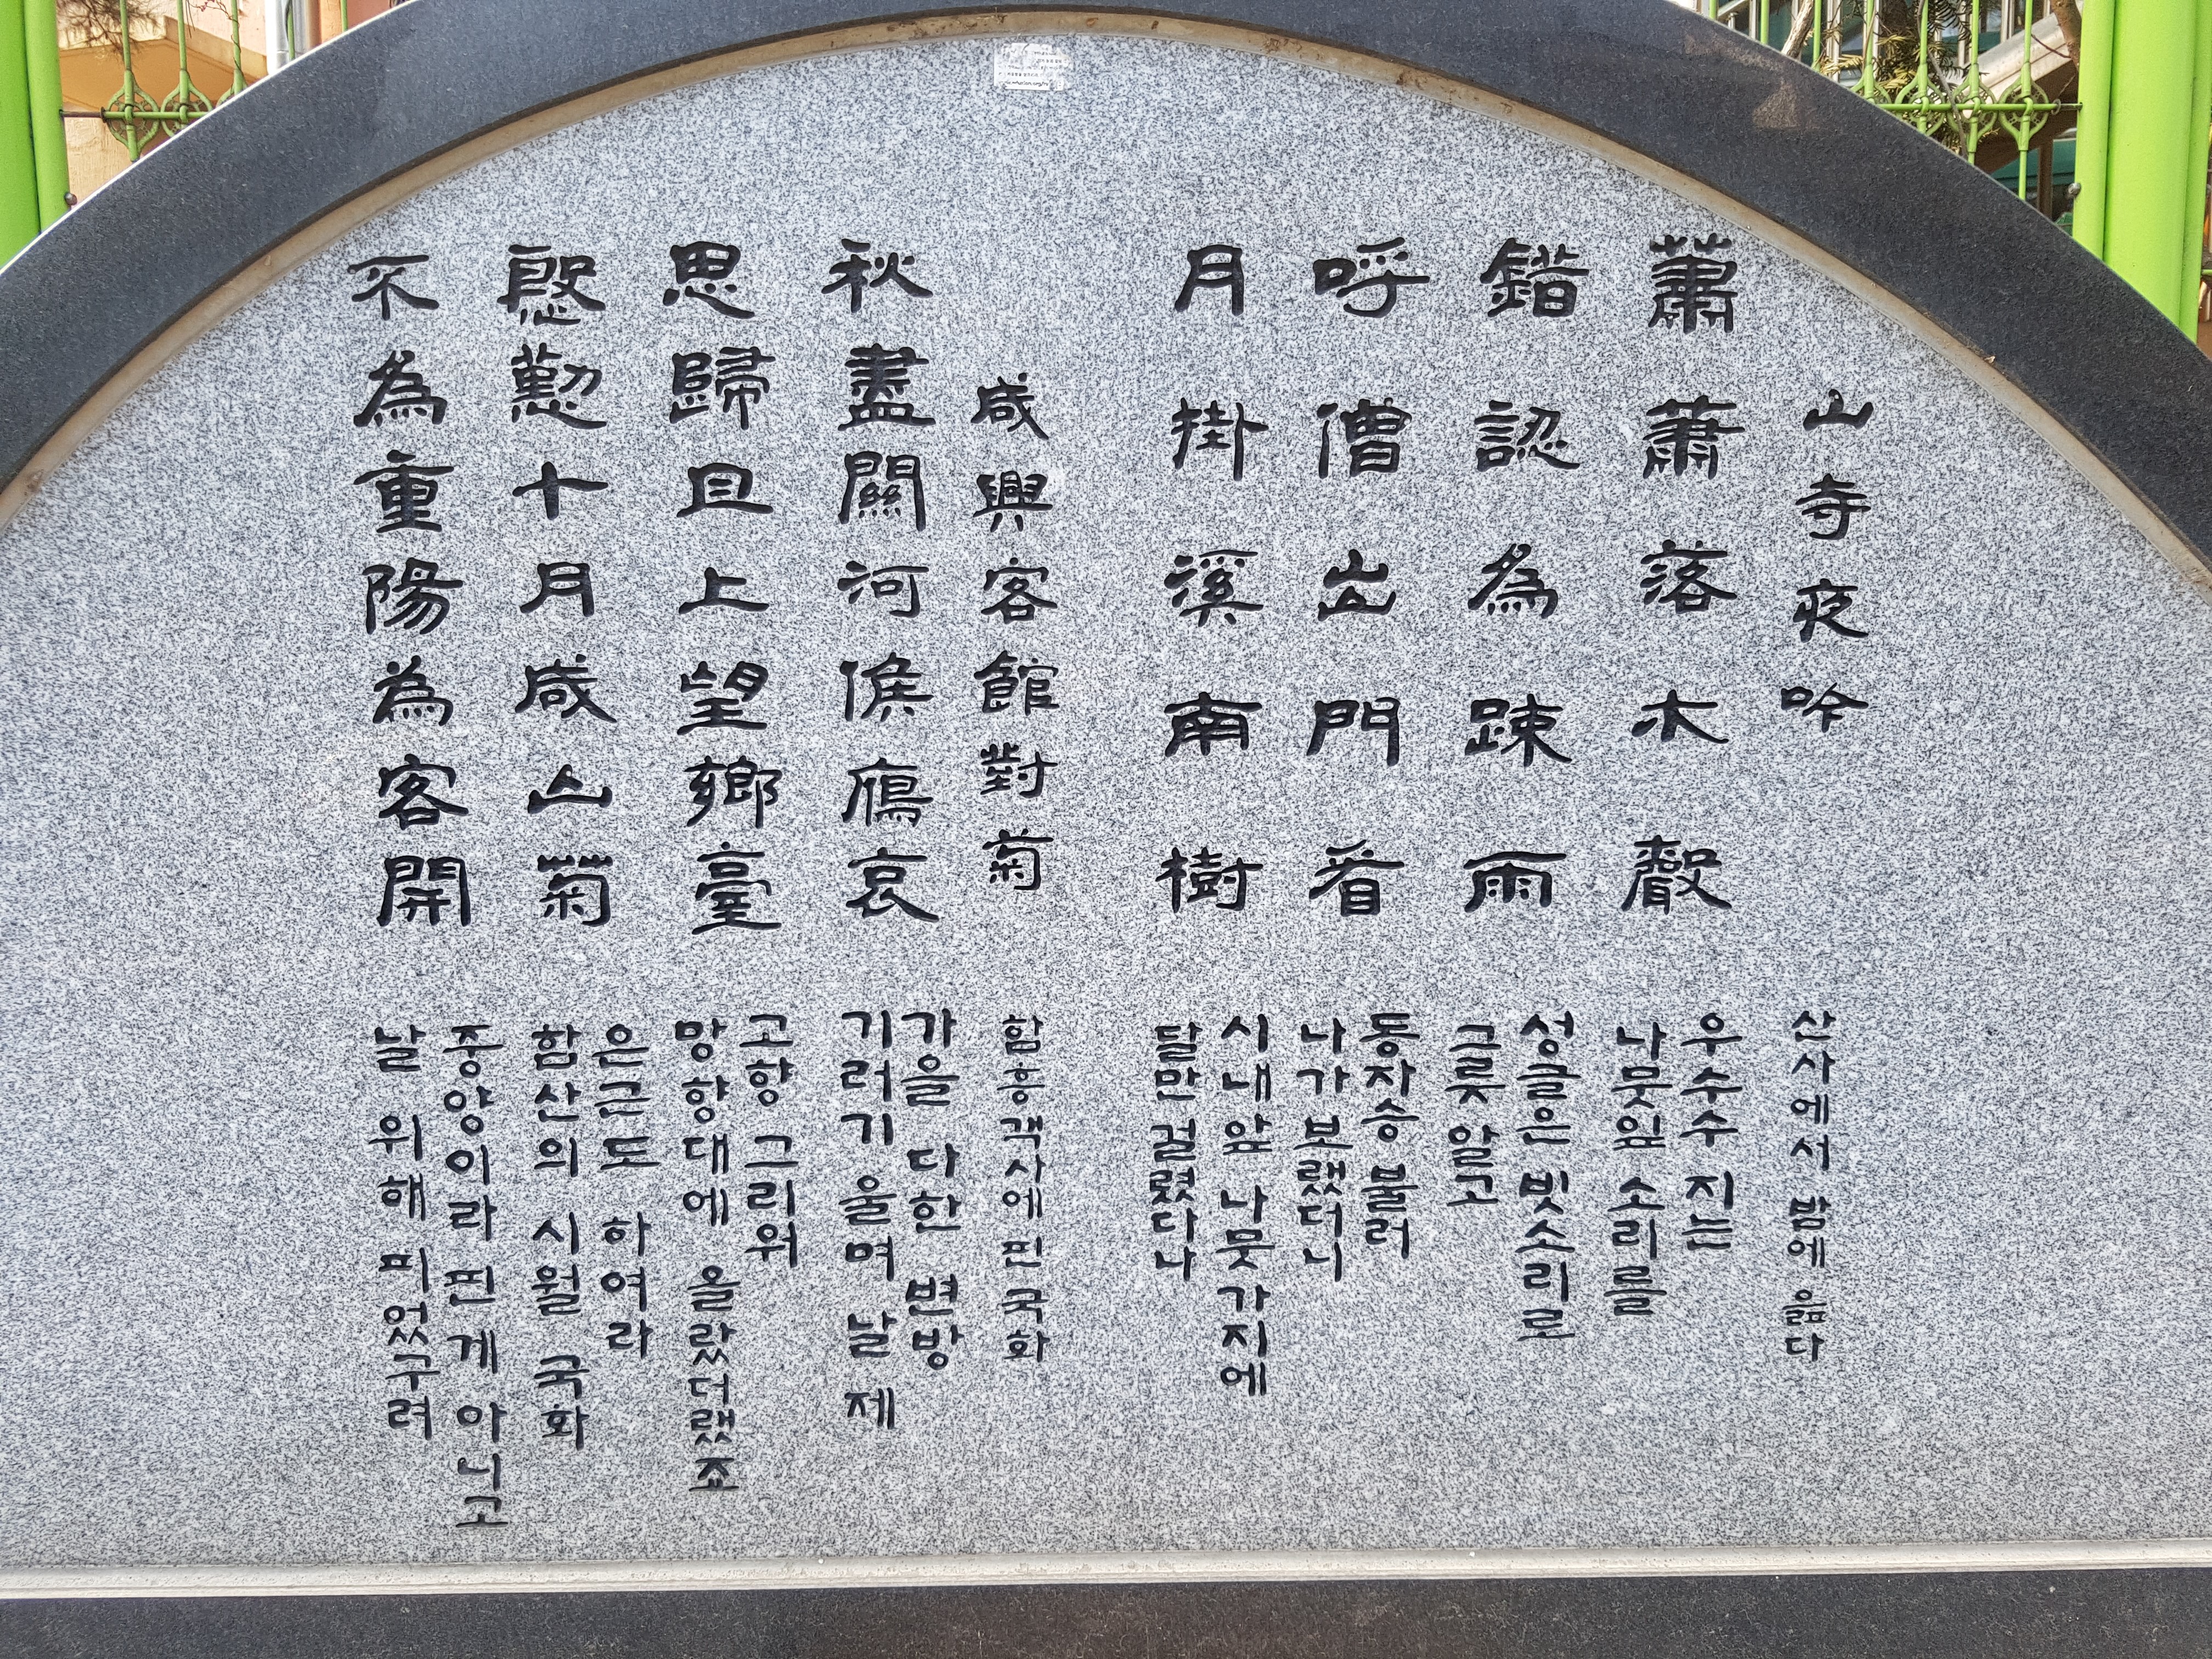 山寺夜吟
蕭蕭落木聲
錯認為踈雨
呼僧出門看
月掛溪南樹
咸興客館對菊
秋盡關河候鴈哀
思歸且上望鄕臺
慇懃十月咸山菊
不為重陽為客開
산사에서 밤에 읊다
우수수 지는
나뭇잎 소리를
성글은 빗소리로
그릇 알고
동자승 불러
나가 보랬더니
시내앞 나뭇가지에
달만 걸렸다나
함흥객사에 핀 국화
가을 다한 변방
기러기 울며 날 제
고향 그리워
망향대에 올랐더랬죠
은근도 하여라
함산의 시월 국화
중양이라 핀게 아니고
날 위해 피었구려